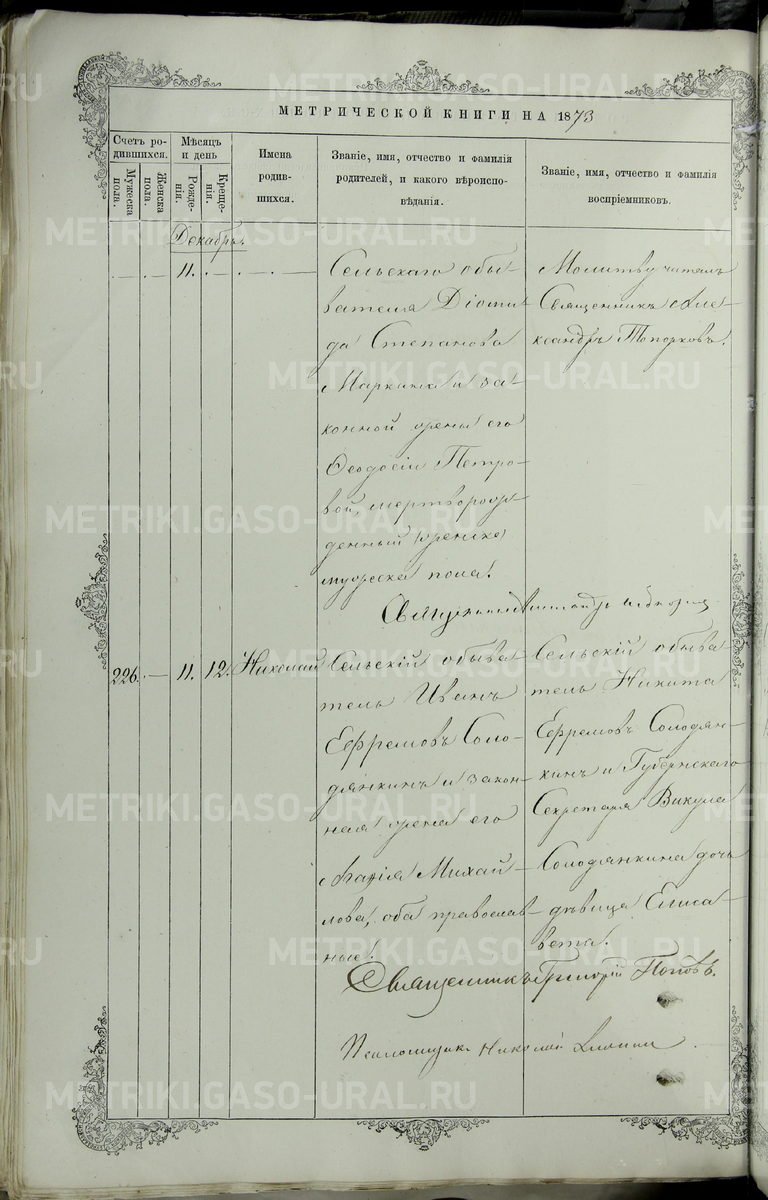 МЕТРИЧЕСКОЙ КНИГИ НА 1873
Счетъ родившихся.
Мужеска пола.
Женска пола.
Мѣсяцъ и день
Рожденія.
Крещенія.
Имена родившихся.
Званіе, имя, отчество и фамилія родителей, и какого вѣроисповѣданія.
Званіе, имя, отчество и фамилія воспріемниковъ.
Декабрь
11.
Сельскаго обы-
вателя Діоми-
да Степанова
Маркина и за-
конной жены его
Ѳеодосіи Петро-
вой, мертворож-
денный
мужеска пола.
Молитву читалъ
Священникъ Але-
ксандръ Топорковъ.
226. 11. 12. Николай
Сельскій обыва
тель Иванъ
Ефремовъ Соло-
дянкинъ и закон-
ная жена его
Михай-
лова, оба православ-
ные.
Сельскій обыва
тель Никита
Ефремовъ Солодян-
кинъ и Губернскаго
Секретаря Викула
Солодянкина дочь
дѣвица Елиса-
вета.
Священникъ Григорій Поповъ.
Псаломщикъ Николай
METRIKI.GASO-URAL.RU